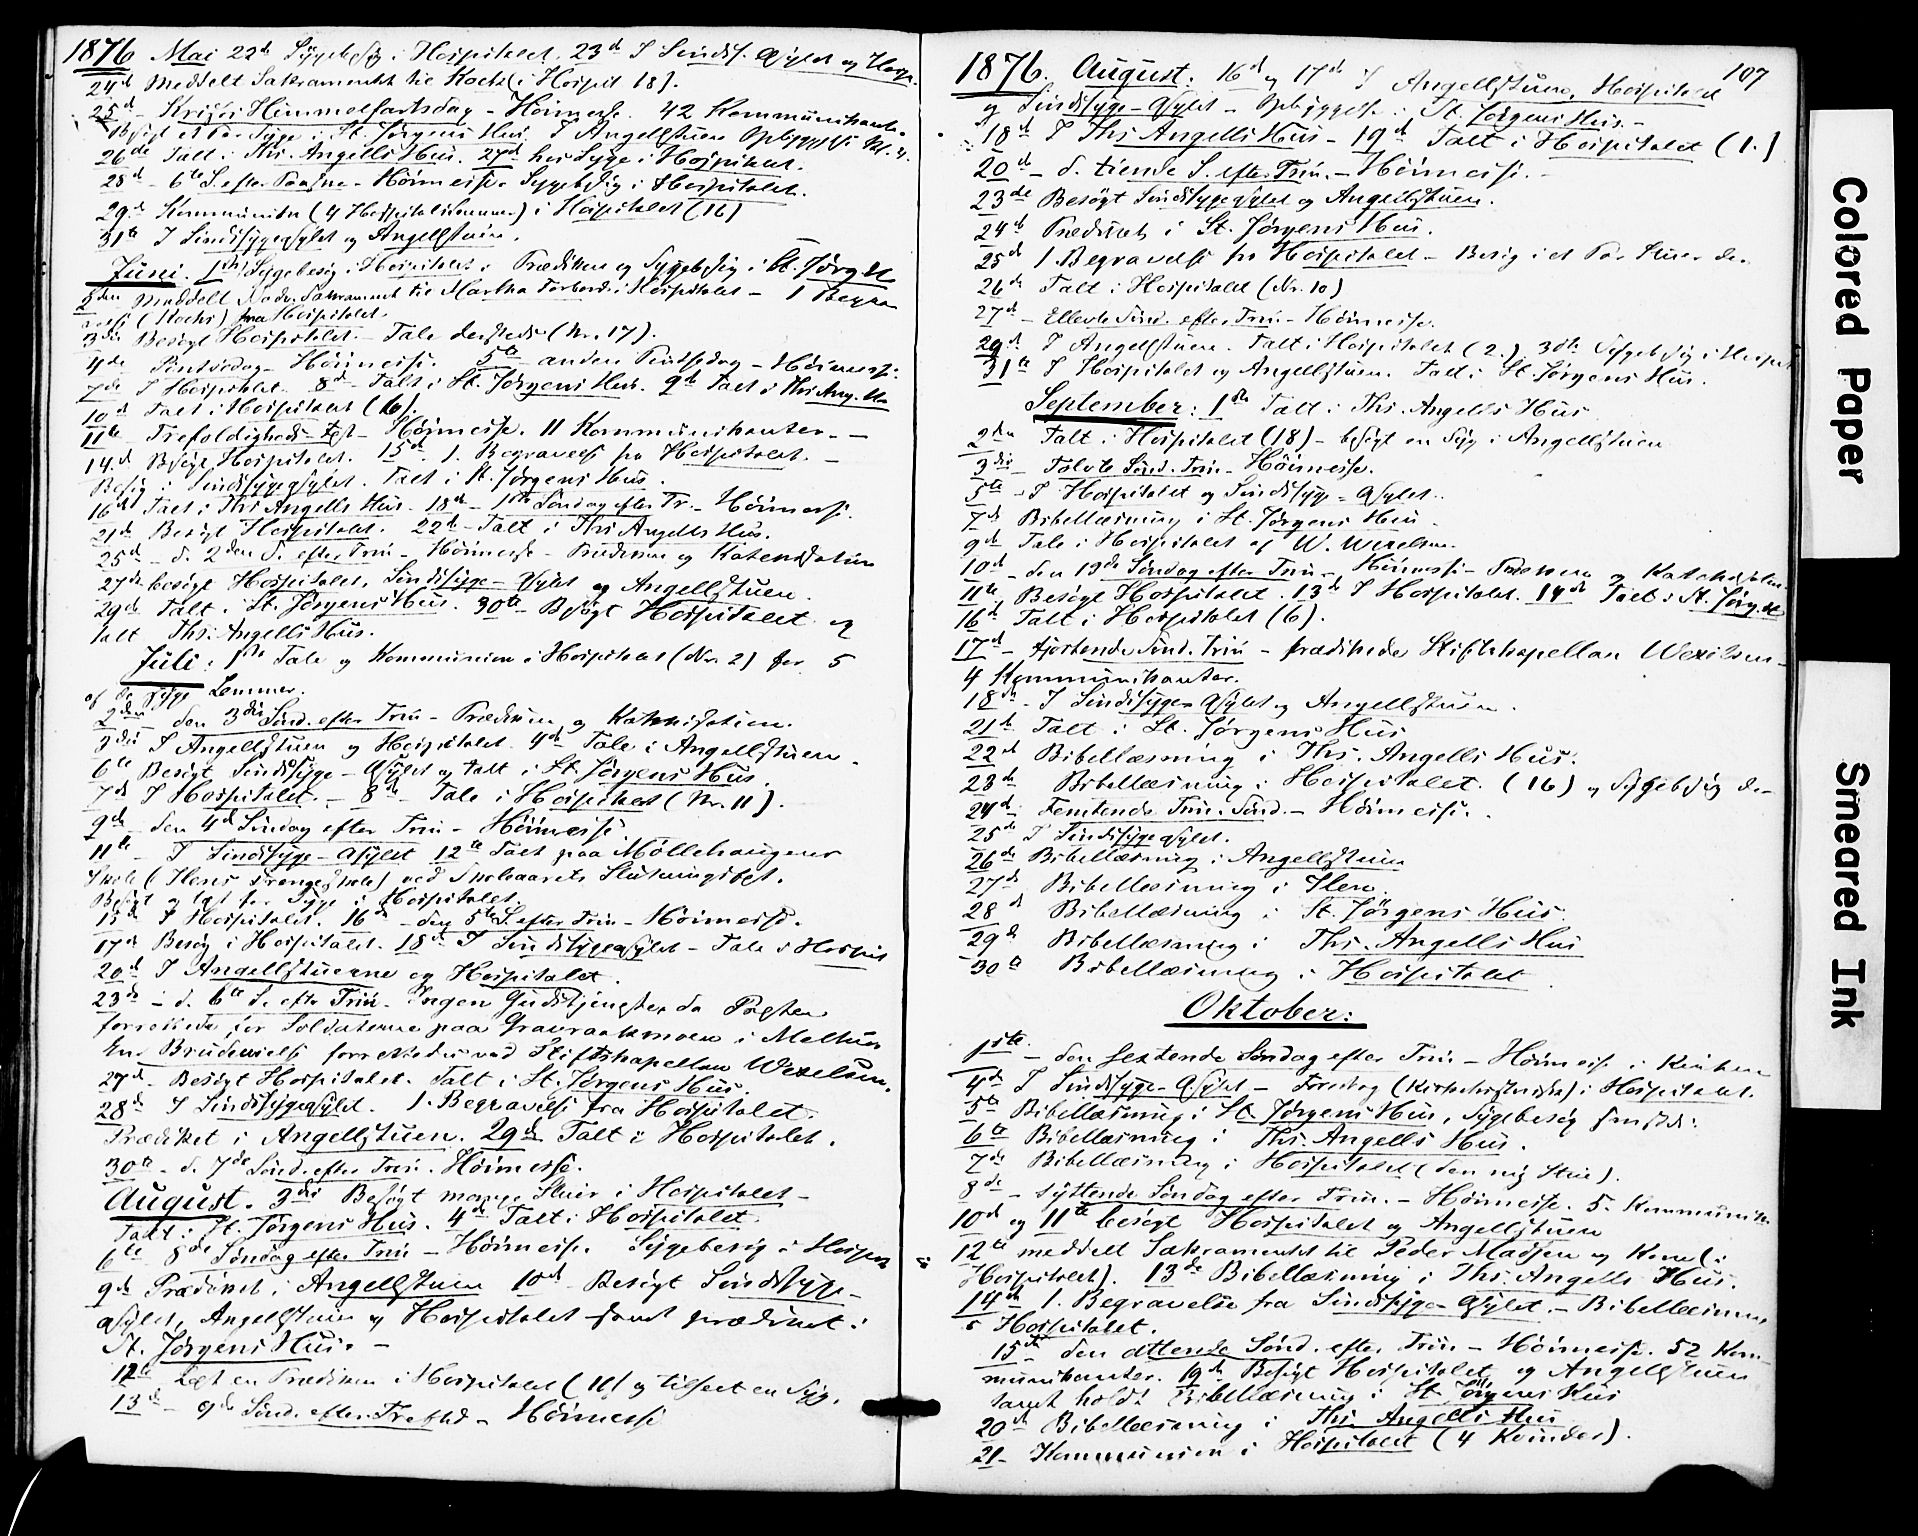 1876 Mai 22de Sygebesøg i Hospitalet. 23de I Sindss. Asylet og Hosp.
24de Meddelt Sakramentet til Kochs (i Hospit 18).
25de Kristi Himmelfartsdag – Høimesse. 42 Kommunikanter
Besøgt et Par Syge i St. Jørgens Hus. I Angellstuen
26de Talt i Ths. Angells Hus. 27de hos Syge i Hospitalet.
28de – 6te S. efter Paaske – Høimesse. Sygebesøg i Hospitalet.
29de Kommunion (4 Hospitalslemmer) i Hospitalet (16)
31te I Sindssygeasylet og Angellstuen.
Juni. 1ste Sygebesøg i Hospitalet. Prædiken og Sygebesøg i St. Jørg. H
2den Meddelt Nadv. Sakrament til Martha i Hospitalet – 1 Begra
velse (Kochs) fra Hospitalet.
3die Besøgt Hospitalet. – Tale dersteds (Nr. 17).
4de Pintsedag – Høimesse. 5te – anden Pintsedag – Høimesse.
7de I Hospitalet. 8de Talt i St. Jørgens Hus. 9de Talt i Ths Ang. Hs
10de Talt i Hospitalet (6).
11te Trefoldigheds Fest – Høimesse. 11 Kommunikanter. –
14de Besøgt Hospitalet. 15de 1. Begravelse fra Hospitalet. –
Besøg i Sindssygeasylet. Talt i St. Jørgens Hus.
16de Talt i Ths Angells Hus. 18de – 1ste Søndag efter Tr. – Høimesse.
21de Besøgt Hospitalet. 22de – Talt i Ths Angells Hus.
25de – d. 2den S. efter Trin – Høimesse – Prædiken og Katekisation
27de besøgt Hospitalet, Sindssyge-Asylet og Angellstuen.
29de Talt i St. Jørgens Hus. 30te Besøgt Hospitalet og
talt Ths. Angells Hus.
Juli: 1ste Tale og Kommunion i Hospitalet (Nr. 2) for 5
af de syge Lemmer.
2den den 3die Sønd. efter Trin – Prædiken og Katekisation.
3die I Angellstuen og Hospitalet. 4de Tale i Angellstuen.
6te Besøgt Sindssyge-Asylet og talt i St. Jørgens Hus.
7de I Hospitalet. – 8de Tale i Hospitalet (Nr. 11).
9de den 4de Søndag efter Trin – Høimesse.
11te – I Sindssyge-Asylet 12te Talt paa Møllebaugens
Skole (Ilens Drengeskole) ved Skoleaarets Slutningsfest.
Besøgt og læst for Syge i Hospitalet.
15de I Hospitalet. 16de – den 5te S. efter Trin – Høimesse.
17de Besøg i Hospitalet. 18de I Sindssygeasylet – Tale i Hospit
20de I Angellstuerne og Hospitalet.
23de – d. 6te S. efter Trin – Ingen Gudstjeneste, da Præsten
forrettede for Soldaterne paa Gravraakmoen i Melhus
En Brudevielse forrettedes ved Stiftskapellan Wexelsen.
27de Besøgt Hospitalet. Talt i St. Jørgens Hus.
28de I Sindssygeasylet. 1. Begravelse fra Hospitalet.
Prædiket i Angellstuen. 29de Talt i Hospitalet.
30te – d. 7de Sønd. efter Trin. Høimesse.
August. 3die Besøgt mange Stuer i Hospitalet –
Talt i St. Jørgens Hus. 4de Talt i Hospitalet.
6te 8de Søndag efter Trin – Høimesse. Sygebesøg i Hospit
9de Prædiket i Angellstuen 10de Besøgt Sindssyge-
Asylet, Angellstuen og Hospitalet samt prædiket i
St. Jørgens Hus. –
12te Læst en Prædiken i Hospitalet (18) og tilseet en Syg.
13de – 9de Sønd. efter Trefhd – Høimesse
1876. August. 16de og 17de I Angellstuen, Hospitalet 107
og Sindssyge-Asylet – Opbyggelse i St. Jørgens Hus. –
18de I Ths Angells Hus – 19de Talt i Hospitalet (1.)
20de – d. tiende S. efter Trin. – Høimesse. –
23de Besøgt Sindssygeasylet og Angellstuen.
24de Prædiket i St. Jørgens Hus.
25de 1 Begravelse fra Hospitalet – Besøg i et Par Stuer der
26de Talt i Hospitalet (Nr. 10)
27de – Ellevte Sønd. efter Trin – Høimesse.
29de I Angellstuen. Talt i Hospitalet (2.) 30te Sygebesøg i Hospit
31te I Hospitalet og Angellstuen. Talt i St. Jørgens Hus.
September: 1ste Talt i Ths. Angells Hus
2den Talt i Hospitalet (18) – besøgt en Syg i Angellstuen
3die – Tolvte Sønd. Trin – Høimesse.
5te – I Hospitalet og Sindssyge-Asylet.
7de Bibellæsning i St. Jørgens Hus.
9de Tale i Hospitalet af W. Wexelsen.
10de – den 13de Søndag efter Trin – Høimesse – Prædiken og Katekisation
11te Besøgt Hospitalet. 13de I Hospitalet. 14de Talt i St. Jørg. H
16de Talt i Hospitalet (6).
17de – fjortende Sønd. Trin – prædikede Stiftskapellan Wexelsen –
4 Kommunikanter.
18de – I Sindssyge-Asylet og Angellstuen.
21de Talt i St. Jørgens Hus
22de Bibellæsning i Ths. Angells Hus.
23de Bibellæsning i Hospitalet. (16) og Sygebesøg der
24de Femtende Trin. Sønd. – Høimesse.
25de I Sindssygeasylet.
26de Bibellæsning i Angellstuen
27de Bibellæsning i Ilen.
28de Bibellæsning i St. Jørgens Hus.
29de Bibellæsning i Ths. Angells Hus
30te Bibellæsning i Hospitalet
Oktober:
1ste – den sextende Søndag efter Trin – Høimesse i Kirken
4de I Sindssyge-Asylet – Foredrag (kirkehistoriske) i Hospitalet.
5te Bibellæsning i St. Jørgens Hus, Sygebesøg
6te Bibellæsning i Ths. Angells Hus.
7de Bibellæsning i Hospitalet (den nye Stue).
8de – syttende Søndag efter Trin. – Høimesse. 5. Kommunik.
10de og 11te besøgt Hospitalet og Angellstuen
12te meddelt Sakramentet til Peder Madsen og Kone (i
Hospitalet). 13de Bibellæsning i Ths. Angells Hus.
14de 1. Begravelse fra Sindssyge-Asylet. – Bibellæsning
i Hospitalet.
15de den attende Sønd. efter Trin – Høimesse. 52 Kom-
munikanter. 19de Besøgt Hospitalet og Angellstuen
samt holdt Bibellæsning i St. Jørgens Hus
20de Bibellæsning i Ths. Angells Hus
21 – Kommunion i Hospitalet (4 Kvinder).
Colored Paper
Smeared Ink